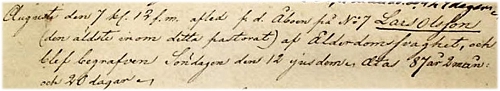 Augusti den 7 kl. 12 f.m. afled på d. Åbein på No 7 Lars Olsson
(den äldste inom detta pastorat) af Ålderdomsswaghet, och
blef begrafven Söndagen den 12 ejusdem, Ætas 87 år 2 mån:
och 20 dagar